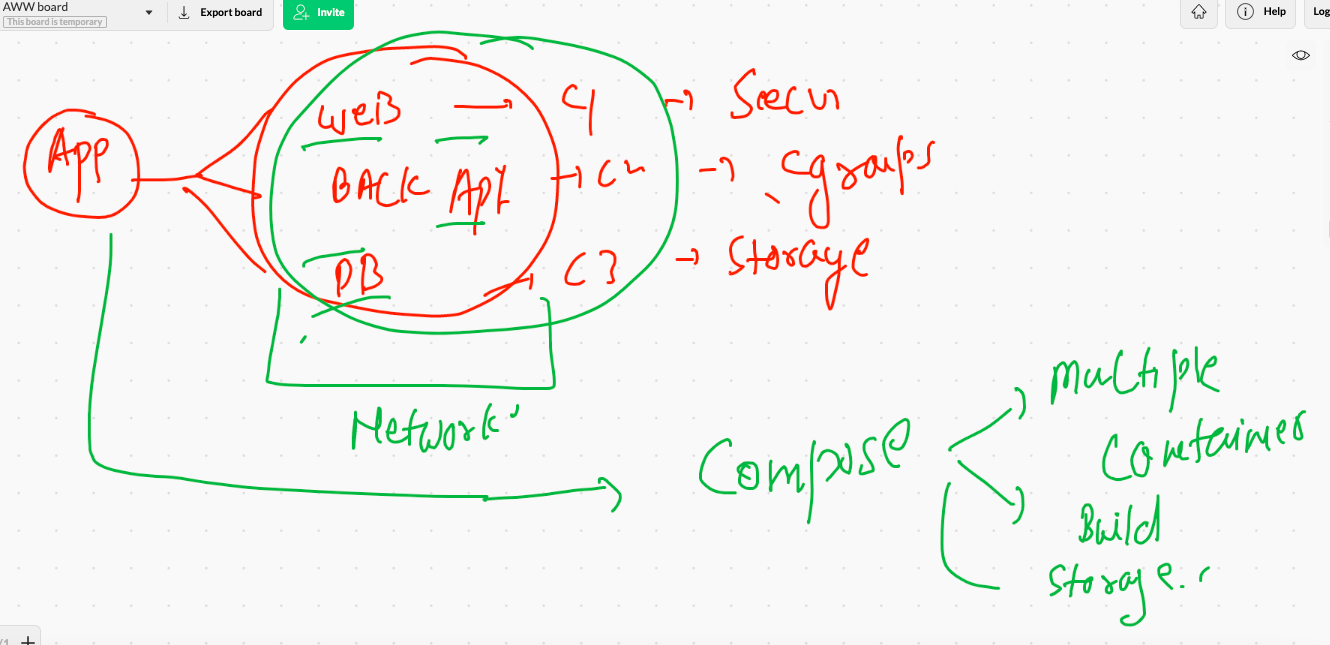 AWW board
This board is temporary
Export board
Invite
Help
Log
App
WeB → C1 → Secur
BACK API → C2 → cgroups
DB → C3 → Storage
Network
Compose
multiple
Container
Build
Storage.